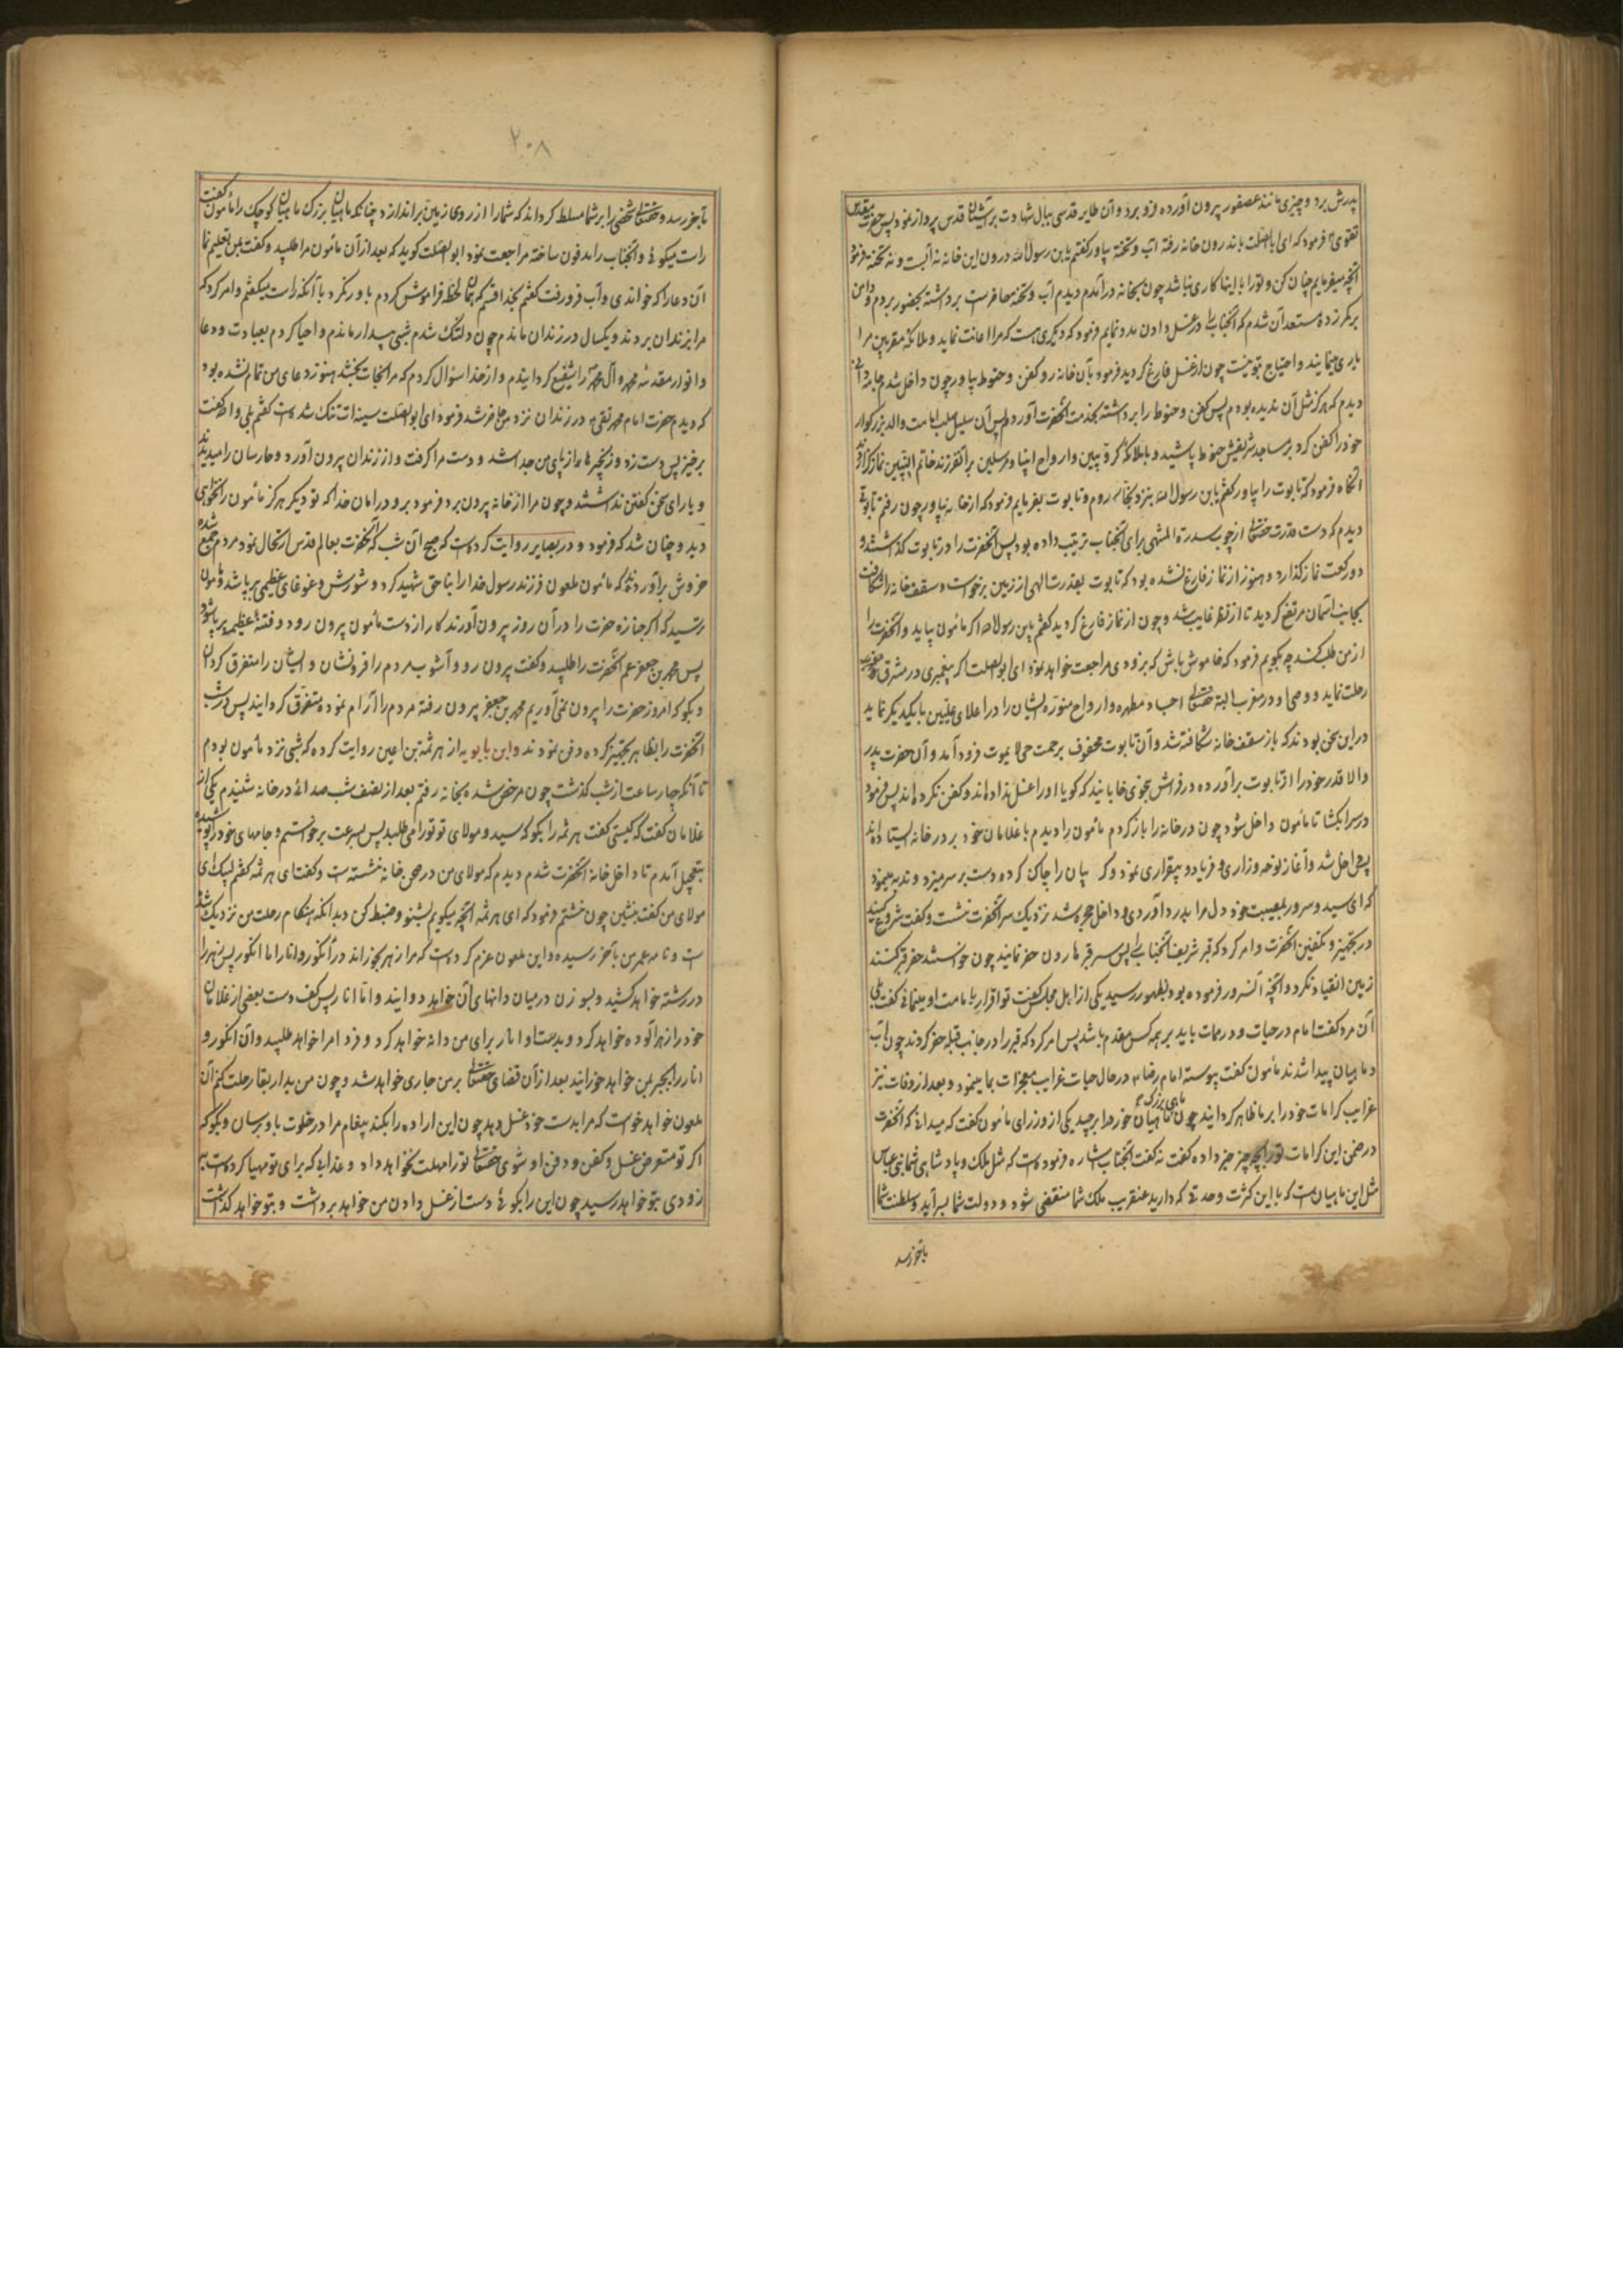 پدرش برد و چیزی مانند عصفور بیرون آورده فرو برد و آن طایر قدسی ببال شهادت بر آشیان قدس پرواز نمود پس حضرت مقدس
تقوی فرمود که ای ابا الصلت باندرون خانه رفته آب و تخته بیاور گفتم یابن رسول الله درون این خانه نه آبست و نه تخته فرمود
آنچه میفرمایم چنان کن و تو را با اینها کاری نباشد چون بخانه درآمدم دیدم آب و تخته حاضرست برداشته بحضور بردم و دامن
بر کمر زده مستعد آن شدم که آنجناب را در غسل دادن مدد نمایم فرمود که دیگری هست که مرا اعانت نماید و ملائکه مقربین مرا
یاری مینمایند و احتیاج بتو نیست چون از غسل فارغ گردید فرمود بآن خانه رو کفن و حنوط بیاور چون داخل شدم جامه
دیدم که هرگز مثل آن ندیده بودم پس کفن و حنوط را برداشته بخدمت آنحضرت آوردم پس آن سلیل صلب امامت والد بزرگوار
خود را کفن کرد بر مساجد شریفش حنوط پاشید و با ملائکه کروبیین و ارواح انبیا و مرسلین بر آنفرزند خاتم النبیین نماز
آنگاه فرمود که تابوت را بیاور گفتم یابن رسول الله بنزد نجار روم و تابوت بفرمایم فرمود که از خانه بیاور چون رفتم تابوتی
دیدم که دست قدرت حقتعالی از چوب سدرة المنتهی برای آنجناب ترتیب داده بود پس آنحضرت را در تابوت گذاشتند و
دو رکعت نماز گذارد و هنوز از نماز فارغ نشده بود که تابوت بقدرت الهی از زمین برخواست و سقف خانه شکافت
بجانب آسمان مرتفع گردید تا از نظر غایب شد و چون از نماز فارغ گردید گفتم یابن رسول الله اگر مأمون بیاید و آنحضرت را
از من طلب کند چه بگویم فرمود که خاموش باش که بزودی مراجعت خواهد نمود ای ابو الصلت اگر پیغمبری در مشرق
رحلت نماید و وصی او در مغرب البته حقتعالی اجساد مطهره و ارواح منوره ایشان را در اعلای علیین با یکدیگر نماید
در این سخن بودند که باز سقف خانه شکافته شد و آن تابوت محفوف برحمت حی لا یموت فرود آمد و آن حضرت پدر
والا قدر خود را از تابوت برآورده در فراش بنحوی خابانید که گویا او را غسل نداده‌اند و کفن نکرده‌اند پس فرمود
در سرا بگشا تا مأمون داخل شود چون در خانه را باز کردم مأمون را دیدم با غلامان خود بر در خانه ایستاده‌اند
پس داخل شد و آغاز نوحه و زاری و فریاد و بیقراری نمود و گریبان را چاک کرده دست بر سر میزد و ندبه مینمود
که ای سید و سرور بمصیبت خود دل مرا بدرد آوردی و داخل حجره شد نزدیک سر آنحضرت نشست و گفت شروع کنید
در تجهیز و تکفین آنحضرت و امر کرد که قبر شریف آنجناب را پس سر قبر هارون حفر نمایند چون خواستند حفر قبر کنند
زمین انقیاد نکرد و آنچه آنسرور فرموده بود بظهور رسید یکی از اهل مجلس گفت تو اقرار بامامت او مینمائی گفت بلی
آن مرد گفت امام در حیات و در ممات باید بر همه کس مقدم باشد پس امر کرد که قبر را در جانب قبله حفر کردند چون آب
و ماهیان پیدا شدند مأمون گفت پیوسته امام رضا در حال حیات غرایب معجزات بما مینمود و بعد از وفات نیز
غرایب کرامات خود را بر ما ظاهر گردانید چون ماهی بزرگ ماهیان خورد را برچید یکی از وزرای مأمون گفت که میدانی که آنحضرت
در ضمن این کرامات تو را بچه چیز خبر داده گفت نه گفت آنجناب اشاره فرموده‌است که مثل ملک و پادشاهی شما بنی عباس
مثل این ماهیان است که با این کثرت و حدتی که دارید عنقریب ملک شما منقضی شود و دولت شما بسر آید و سلطنت شما
بآخر رسد
۲۰۸
بآخر رسد و حقتعالی شخصی را بر شما مسلط گرداند که شما را از روی زمین براندازد چنانکه ماهیان بزرگ ماهیان کوچک را مأمون گفت
راست میگوئی و آنجناب را مدفون ساخته مراجعت نمود ابو الصلت گوید که بعد از آن مأمون مرا طلبید و گفت بمن تعلیم نما
آن دعا را که خواندی و آب فرو رفت گفتم بخدا قسم که همان لحظه فراموش کردم باور نکرد با آنکه راست میگفتم و امر کرد که
مرا بزندان بردند و یکسال در زندان ماندم چون دلتنگ شدم شبی بیدار ماندم و احیا کردم بعبادت و دعا
و انوار مقدسه محمد و آل محمد را شفیع گردانیدم و از خدا سئوال کردم که مرا نجات بخشد هنوز دعای من تمام نشده بود
که دیدم حضرت امام محمد تقی در زندان نزد من حاضر شد فرمود ای ابو الصلت سینه‌ات تنگ شده است گفتم بلی والله گفت
برخیز پس دست زد و زنجیرها از پای من جدا شد و دست مرا گرفت و از زندان بیرون آورد و حارسان را میدیدند
و یارای سخن گفتن نداشتند و چون مرا از خانه بیرون برد فرمود برو در امان خدا که تو دیگر هرگز مأمون را نخواهی
دید و چنان شد که فرمود و در بصایر روایت کرده‌است که صبح آن شب که آنحضرت بعالم قدس ارتحال نمود مردم جمع شده
خروش برآوردند که مأمون ملعون فرزند رسول خدا را بناحق شهید کرد و شورش و غوغای عظیمی برپا شد مأمون
ترسید که اگر جنازه حضرت را در آن روز بیرون آورند کار از دست مأمون بیرون رود و فتنه عظیم برپا شود
پس محمد بن جعفر عم آنحضرت را طلبید و گفت بیرون رو و آشوب مردم را فرو نشان و ایشان را متفرق گردان
و بگو که امروز حضرت را بیرون نمی‌آوریم محمد بن جعفر بیرون رفته مردم را آرام نموده متفرق گردانید پس در شب
آنحضرت را بظاهر تجهیز کرده دفن نمودند و ابن بابویه از هرثمة بن اعین روایت کرده که شبی نزد مأمون بودم
تا آنکه چهار ساعت از شب گذشت چون مرخص شده بخانه رفتم بعد از نصف شب صدای در خانه شنیدم یکی از
غلامان گفت که کیستی گفت هرثمه را بگو که سید و مولای تو تو را می‌طلبد پس بسرعت برخواستم و جامهای خود را پوشیده
بتعجیل آمدم تا داخل خانه آنحضرت شدم دیدم که مولای من در صحن خانه نشسته‌است و گفت ای هرثمه گفتم لبیک ای
مولای من گفت بنشین چون نشستم فرمود که ای هرثمه آنچه میگویم بشنو و ضبط کن و بدانکه هنگام رحلت من نزدیک شده
است و نامه عمر من بآخر رسیده و این ملعون عزم کرده‌است که مرا زهر بخوراند در انگور و انار اما انگور پس زهر را
در رشته خواهد کشید و بسوزن در میان دانهای آن خواهد دوانید و اما انار پس کف دست بعضی از غلامان
خود را زهر آلوده خواهد کرد و بدست او انار برای من دانه خواهد کرد و فردا مرا خواهد طلبید و آن انگور و
انار را بجبر بمن خواهد خورانید بعد از آن قضای حقتعالی بر من جاری خواهد شد و چون من بدار بقا رحلت کنم آن
ملعون خواهد خواست که مرا بدست خود غسل دهد چون این اراده را بکند پیغام مرا در خلوت باو برسان و بگو که
اگر تو متعرض غسل و کفن و دفن او شوی حقتعالی تو را مهلت نخواهد داد و عذابی که برای تو مهیا کرده‌است
زودی بتو خواهد رسید چون این را بگوئی دست از غسل دادن من خواهد برداشت و بتو خواهد گذاشت